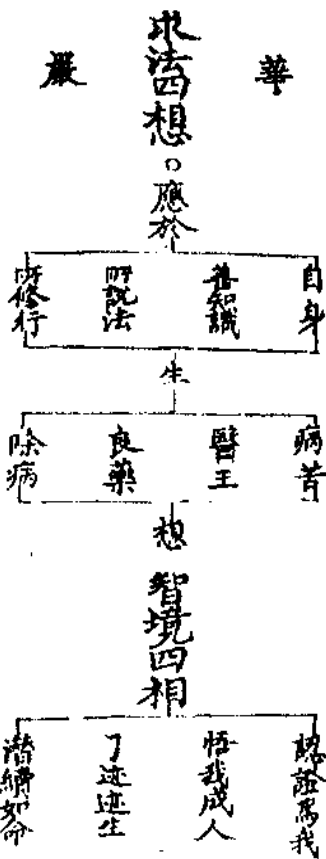 華嚴
求法四想。應於
自身
善知識
所說法
所修行
生
病苦
醫王
良藥
除病
想
智境四相
認證為我
悟我成人
了迹迹生
潛續如命